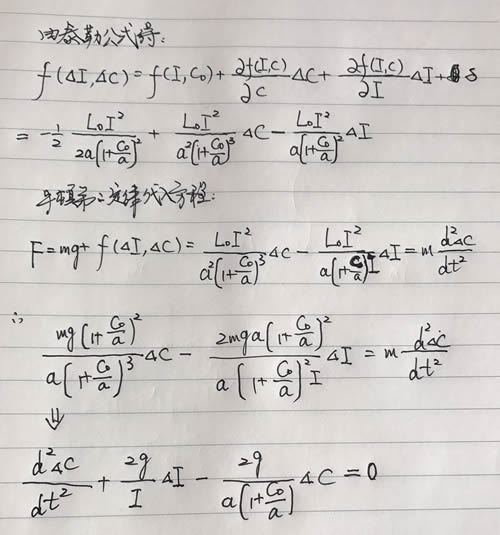 由泰勒公式得:
f(ΔI,ΔC) = f(I,C₀) + ∂f(I,C)/∂C ΔC + ∂f(I,C)/∂I ΔI + δ
= -1/2 L₀I²/(2a(1+C₀/a)²) + L₀I²/(a²(1+C₀/a)³) ΔC - L₀I²/(a(1+C₀/a)²) ΔI
牛顿第二定律代入方程:
F = mg + f(ΔI,ΔC) = L₀I²/(a²(1+C₀/a)³) ΔC - L₀I²/(a(1+C/a)²I) ΔI = m d²ΔC/dt²
∴
mg(1+C₀/a)²/(a(1+C₀/a)³) ΔC - 2mga(1+C₀/a)²/(a(1+C₀/a)²I) ΔI = m d²ΔC/dt²
⇓
d²ΔC/dt² + 2g/I ΔI - 2g/(a(1+C₀/a)) ΔC = 0